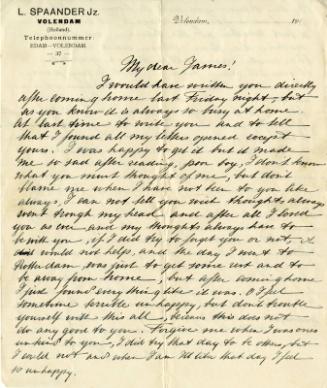 L. SPAANDER Jz.
VOLENDAM
(Holland).
Telephoonnummer
EDAM-VOLENDAM
37
Volendam, 19
My dear James!
I would have written you directly
after coming home last Friday night, but
as you know it is always so busy at home
at last time to write you and to tell
that I found all my letters opened except
yours. I was happy to get it but it made
me so sad after reading, poor boy, I don't know
what you must thought of me, but don't
blame me when I have not been to you like
always, I can not tell you wich thoughts always
went trough my head and after all I loved
you as ever and my thoughts always have to
be with you, if I did try to forget you or not, it
did would not help, and the day I went to
Rotterdam was just to get some rest and to
be away from home, but after coming home
I just found everything like it was, I feel
sometime terrible unhappy, but don't trouble
yourself with this all, because this does not
do any good to you. Forgive me when I was ones
unkind to you, I did try that day to be others, but
I could not and when I am I'll like that day I feel
so unhappy.